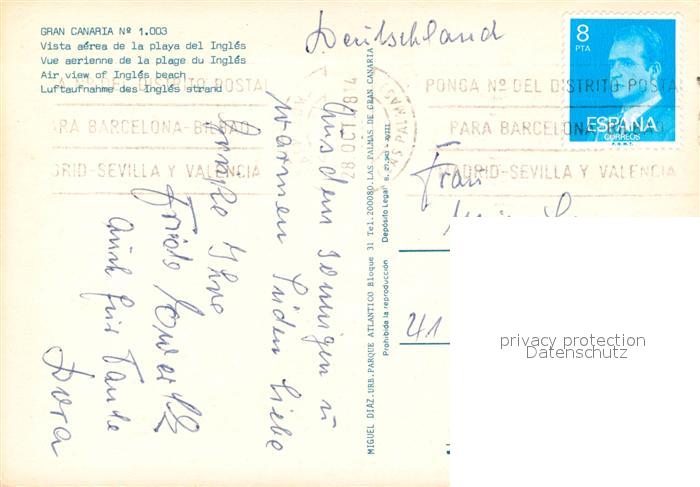 GRAN CANARIA Nº 1.003
Vista aérea de la playa del Inglés
Vue aerienne de la plage du Inglés
Air view of Inglés beach
Luftaufnahme des Inglés strand
Deutschland
8
PTA
ESPAÑA
CORREOS
PONGA Nº DEL DISTRITO POSTAL
PARA BARCELONA-BILBAO
MADRID-SEVILLA Y VALENCIA
DISTRITO POSTAL
ARA BARCELONA-BILBAO
DRID-SEVILLA Y VALENCIA
Aus dem sonnigen u
warmen Süden liebe
Grüße Ihre
Frieda
auch für Tante
Dora
MIGUEL DIAZ.URB.PARQUE ATLANTICO Bloque 31 Tel.200080.LAS PALMAS DE GRAN CANARIA
Prohibida la reproducción Depósito Legal B. 27.943 - XVIII
Frau
41
privacy protection
Datenschutz